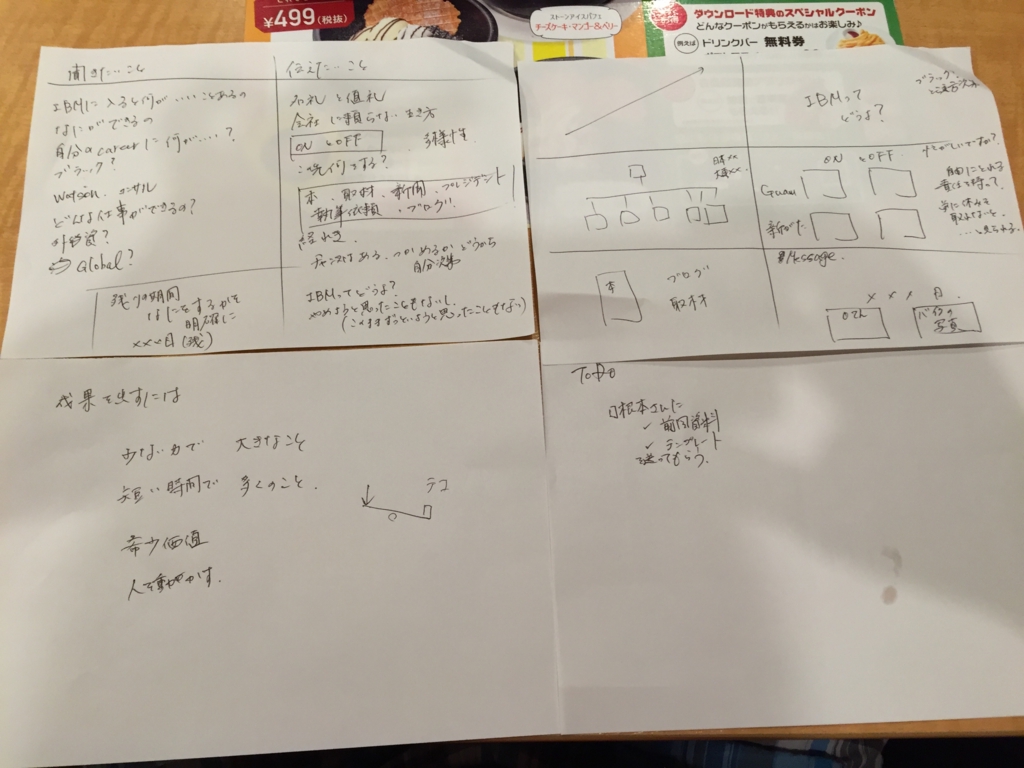 ¥499(税抜)
ストーンアイスパフェ
チーズケーキ・マンゴー&ベリー
ダウンロード特典のスペシャルクーポン
どんなクーポンがもらえるかはお楽しみ♪
例えば ドリンクバー 無料券
聞きたいこと
IBMに入ると何がいいことあるの
なにができるの
自分のcareerに何が……?
ブラック?
Watson、コンサル
どんな仕事ができるの?
外資?
Global?
残り期間
なにをするかを
明確に
×××日(残)
伝えたいこと
名札と値札
会社に頼らない生き方
ON とOFF 多様性
本、取材、新聞、プレジデント
執筆依頼、ブログ
チャンスはある、つかめるかどうか
自分次第
IBMってどうよ?
やめようと思ったこともないし、
(このままずっといようと思ったこともない)
IBMって
どうよ?
ブラック、
ON とOFF
Guam
自由にとれる
本
ブログ
取材
Message.
×××日
バイクの
写真
成果を出すには
少ない力で 大きなこと
短い時間で 多くのこと.
テコ
希少価値
人を動かす.
ToDo
日根本さんに
✓ 前回資料
✓ テンプレート
を送ってもらう.